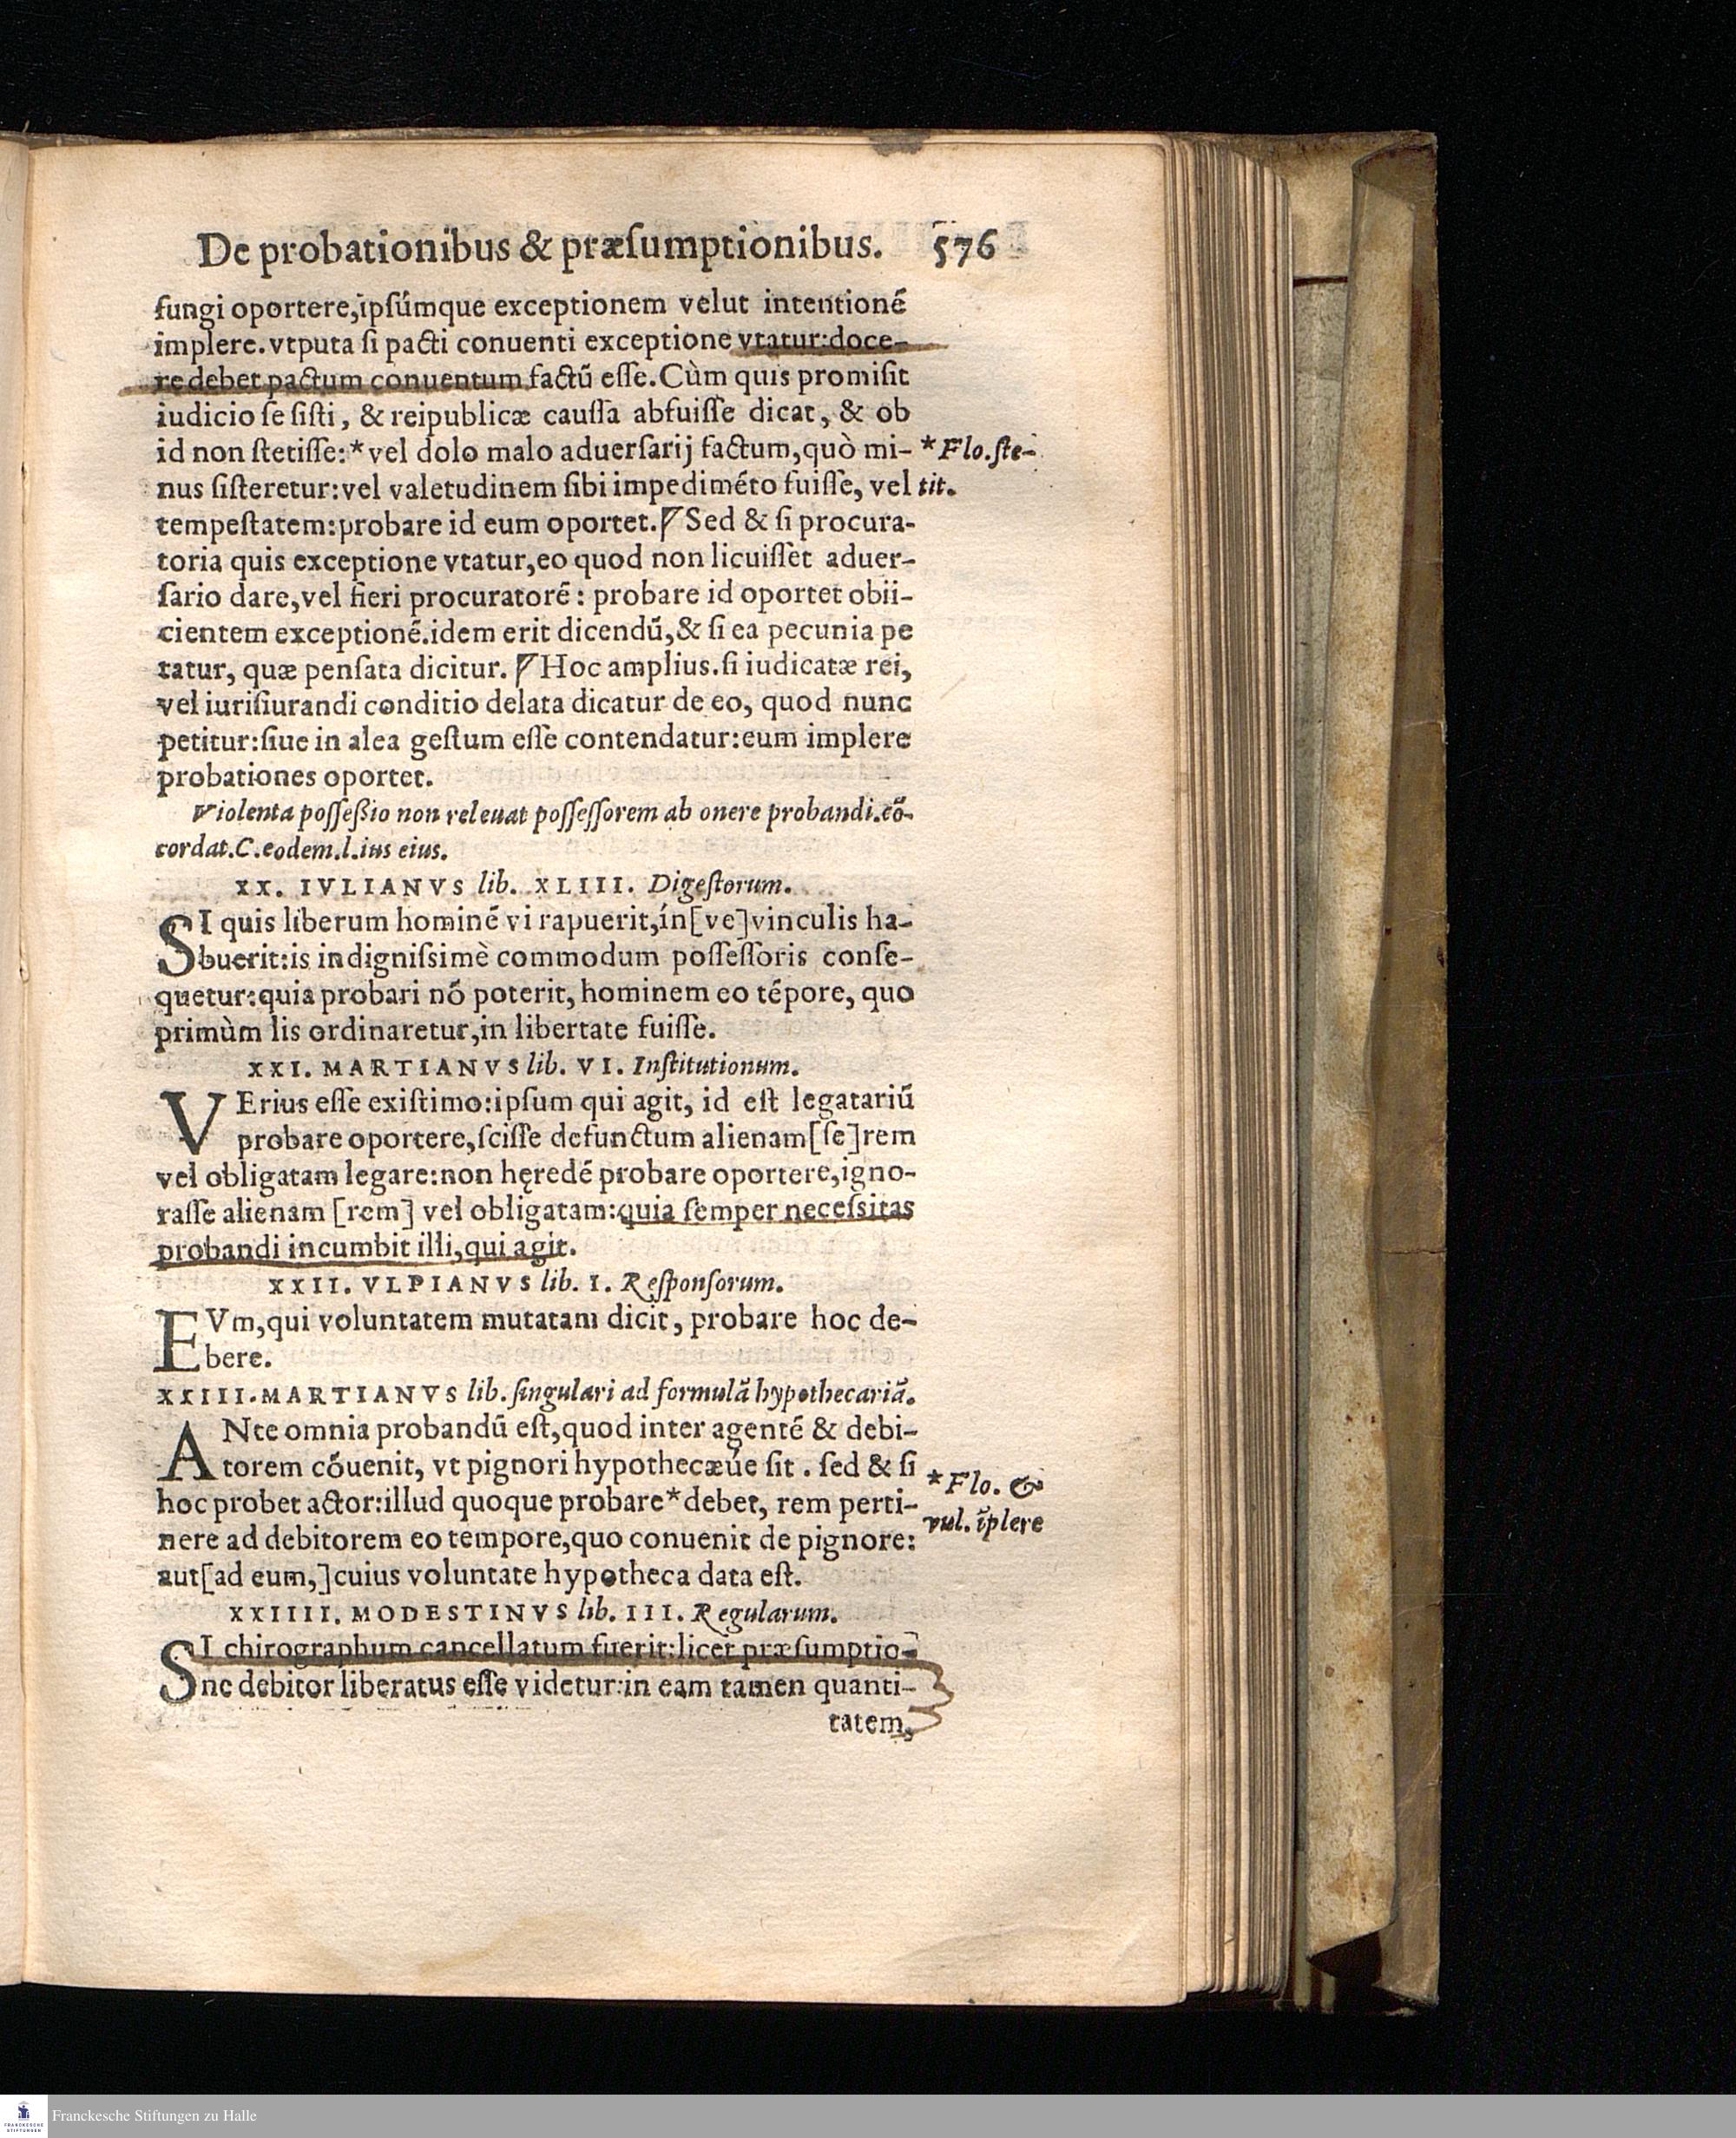 De probationibus & præſumptionibus. 576
fungi oportere,ipſúmque exceptionem velut intentionẽ
implere.vtputa ſi pacti conuenti exceptione vtatur:doce-
re debet pactum conuentum factũ eſſe.Cùm quis promiſit
iudicio ſe ſiſti, & reipublicæ cauſſa abfuiſſe dicat, & ob
id non ſtetiſſe:*vel dolo malo aduerſarij factum,quò mi-
*Flo.ſte-
nus ſiſteretur:vel valetudinem ſibi impedimẽto fuiſſe, vel
tit.
tempeſtatem:probare id eum oportet.Sed & ſi procura-
toria quis exceptione vtatur,eo quod non licuiſſet aduer-
ſario dare,vel fieri procuratorẽ: probare id oportet obii-
cientem exceptionẽ.idem erit dicendũ,& ſi ea pecunia pe
tatur, quæ penſata dicitur. Hoc amplius.ſi iudicatæ rei,
vel iuriſiurandi conditio delata dicatur de eo, quod nunc
petitur:ſiue in alea geſtum eſſe contendatur:eum implere
probationes oportet.
Violenta poſſeßio non releuat poſſeſſorem ab onere probandi.cõ-
cordat.C.eodem.l.ius eius.
XX. IVLIANVS lib. XLIII. Digeſtorum.
SI quis liberum hominẽ vi rapuerit,ín[ve]vinculis ha-
buerit:is indigniſsimè commodum poſſeſſoris conſe-
quetur:quia probari nõ poterit, hominem eo tẽpore, quo
primùm lis ordinaretur,in libertate fuiſſe.
XXI. MARTIANVS lib. VI. Inſtitutionum.
VErius eſſe exiſtimo:ipſum qui agit, id eſt legatariũ
probare oportere,ſciſſe defunctum alienam[ſe]rem
vel obligatam legare:non hęredẽ probare oportere,igno-
raſſe alienam [rem] vel obligatam:quia ſemper neceſsitas
probandi incumbit illi,qui agit.
XXII. VLPIANVS lib. I. Reſponſorum.
EVm,qui voluntatem mutatam dicit, probare hoc de-
bere.
XXIII.MARTIANVS lib. ſingulari ad formulã hypothecariã.
ANte omnia probandũ eſt,quod inter agentẽ & debi-
torem cõuenit, vt pignori hypothecæúe ſit . ſed & ſi
*Flo. &
hoc probet actor:illud quoque probare*debet, rem perti-
vul. ĩplere
nere ad debitorem eo tempore,quo conuenit de pignore:
aut[ad eum,]cuius voluntate hypotheca data eſt.
XXIIII. MODESTINVS lib. III. Regularum.
SI chirographum cancellatum fuerit:licet præſumptio-
ne debitor liberatus eſſe videtur:in eam tamen quanti-
tatem,
Franckesche Stiftungen zu Halle
FRANCKESCHE
STIFTUNGEN